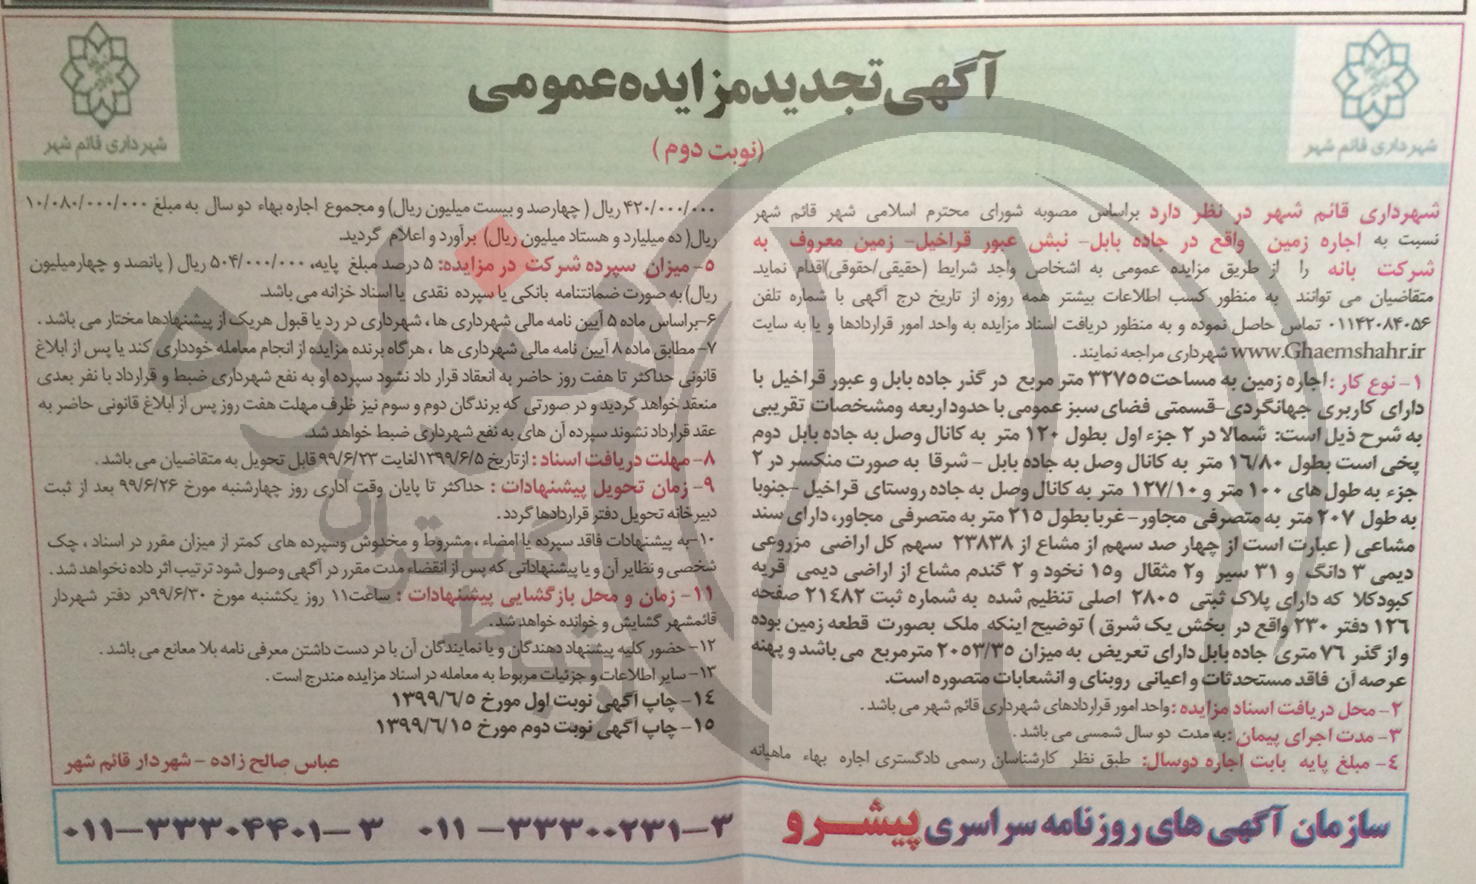 آگهی تجدید مزایده عمومی
(نوبت دوم)
شهرداری قائم شهر
شهرداری قائم شهر
شهرداری قائم شهر در نظر دارد براساس مصوبه شورای محترم اسلامی شهر قائم شهر
نسبت به اجاره زمین واقع در جاده بابل- نبش عبور قراخیل- زمین معروف به
شرکت بانه را از طریق مزایده عمومی به اشخاص واجد شرایط (حقیقی/حقوقی)اقدام نماید.
متقاضیان می توانند به منظور کسب اطلاعات بیشتر همه روزه از تاریخ درج آگهی با شماره تلفن
۰۱۱۴۲۰۸۴۰۵۶ تماس حاصل نموده و به منظور دریافت اسناد مزایده به واحد امور قراردادها و یا به سایت
www.Ghaemshahr.ir شهرداری مراجعه نمایند.
۱- نوع کار: اجاره زمین به مساحت۳۲۷۵۵ متر مربع در گذر جاده بابل و عبور قراخیل با
دارای کاربری جهانگردی-قسمتی فضای سبز عمومی با حدود اربعه ومشخصات تقریبی
به شرح ذیل است: شمالا در ۲ جزء اول بطول ۱۲۰ متر به کانال وصل به جاده بابل دوم
پخی است بطول ۱۶/۸۰ متر به کانال وصل به جاده بابل - شرقا به صورت منکسر در ۲
جزء به طول های ۱۰۰ متر و ۱۲۷/۱۰ متر به کانال وصل به جاده روستای قراخیل -جنوبا
به طول ۲۰۷ متر به متصرفی مجاور-غربا بطول ۲۱۵ متر به متصرفی مجاور، دارای سند
مشاعی ( عبارت است از چهار صد سهم از مشاع از ۲۳۸۳۸ سهم کل اراضی مزروعی
دیمی ۳ دانگ و ۳۱ سیر و۲ مثقال و۱۵ نخود و ۲ گندم مشاع از اراضی دیمی قریه
کبودکلا که دارای پلاک ثبتی ۲۸۰۵ اصلی تنظیم شده به شماره ثبت ۲۱۴۸۲ صفحه
۱۲۶ دفتر ۲۳۰ واقع در بخش یک شرق ) توضیح اینکه ملک بصورت قطعه زمین بوده
و از گذر ۷۶ متری جاده بابل دارای تعریض به میزان ۲۰۵۳/۳۵ مترمربع می باشد و پهنه
عرصه آن فاقد مستحدثات و اعیانی روبنای و انشعابات متصوره است.
۲- محل دریافت اسناد مزایده : واحد امور قراردادهای شهرداری قائم شهر می باشد .
۳- مدت اجرای پیمان :به مدت دو سال شمسی می باشد .
۴- مبلغ پایه بابت اجاره دوسال: طبق نظر کارشناسان رسمی دادگستری اجاره بهاء ماهیانه
۴۲۰/۰۰۰/۰۰۰ ریال ( چهارصد و بیست میلیون ریال) و مجموع اجاره بهاء دو سال به مبلغ ۱۰/۰۸۰/۰۰۰/۰۰۰
ریال( ده میلیارد و هستاد میلیون ریال) برآورد و اعلام گردید.
۵- میزان سپرده شرکت در مزایده: ۵ درصد مبلغ پایه، ۵۰۴/۰۰۰/۰۰۰ ریال ( پانصد و چهارمیلیون
ریال) به صورت ضمانتنامه بانکی یا سپرده نقدی یا اسناد خزانه می باشد.
۶-براساس ماده ۵ آیین نامه مالی شهرداری ها ، شهرداری در رد یا قبول هریک از پیشنهادها مختار می باشد .
۷- مطابق ماده ۸ آیین نامه مالی شهرداری ها ، هرگاه برنده مزایده از انجام معامله خودداری کند یا پس از ابلاغ
قانونی حداکثر تا هفت روز حاضر به انعقاد قرار داد نشود سپرده او به نفع شهرداری ضبط و قرارداد با نفر بعدی
منعقد خواهد گردید و در صورتی که برندگان دوم و سوم نیز ظرف مهلت هفت روز پس از ابلاغ قانونی حاضر به
عقد قرارداد نشوند سپرده آن های به نفع شهرداری ضبط خواهد شد.
۸- مهلت دریافت اسناد : از تاریخ ۱۳۹۹/۶/۵لغایت ۹۹/۶/۲۳ قابل تحویل به متقاضیان می باشد .
۹- زمان تحویل پیشنهادات : حداکثر تا پایان وقت اداری روز چهارشنبه مورخ ۹۹/۶/۲۶ بعد از ثبت
دبیرخانه تحویل دفتر قراردادها گردد .
۱۰-به پیشنهادات فاقد سپرده یا امضاء ، مشروط و مخدوش وسپرده های کمتر از میزان مقرر در اسناد ، چک
شخصی و نظایر آن و یا پیشنهاداتی که پس از انقضاء مدت مقرر در آگهی وصول شود ترتیب اثر داده نخواهد شد .
۱۱- زمان و محل بازگشایی پیشنهادات : ساعت۱۱ روز یکشنبه مورخ ۹۹/۶/۳۰در دفتر شهردار
قائمشهر گشایش و خوانده خواهد شد .
۱۲- حضور کلیه پیشنهاد دهندگان و یا نمایندگان آن با در دست داشتن معرفی نامه بلا معانع می باشد .
۱۳- سایر اطلاعات و جزئیات مربوط به معامله در اسناد مزایده مندرج است .
۱۴- چاپ آگهی نوبت اول مورخ ۱۳۹۹/۶/۵
۱۵- چاپ آگهی نوبت دوم مورخ ۱۳۹۹/۶/۱۵
عباس صالح زاده - شهردار قائم شهر
سازمان آگهی های روزنامه سراسری پیشرو ۳-۳۳۳۰۰۲۳۱-۰۱۱ ۳-۳۳۳۰۴۴۰۱-۰۱۱